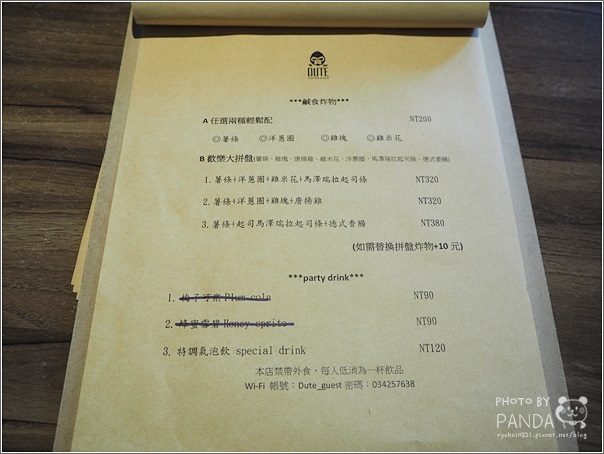 DUTE
***鹹食炸物***
A 任選兩種輕鬆配 NT200
◎薯條 ◎洋蔥圈 ◎雞塊 ◎雞米花
B 歡樂大拼盤(薯條、雞塊、唐揚雞、雞米花、洋蔥圈、馬澤瑞拉起司條、德式香腸)
1. 薯條+洋蔥圈+雞米花+馬澤瑞拉起司條 NT320
2. 薯條+洋蔥圈+雞塊+唐揚雞 NT320
3. 薯條+起司馬澤瑞拉起司條+德式香腸 NT380
(如需替換拼盤炸物+10 元)
***party drink***
1. 梅子可樂 Plum cola NT90
2. 蜂蜜雪碧 Honey sprite NT90
3. 特調氣泡飲 special drink NT120
本店禁帶外食，每人低消為一杯飲品
Wi-Fi 帳號：Dute_guest 密碼：034257638
PHOTO BY
PANDA
ryoho19221.pixnet.net/blog